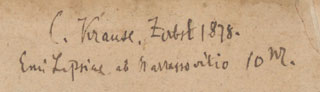 C. Krause, Zerbst 1878.
Emi Lipsiae ab Harrassovitio 10 M.